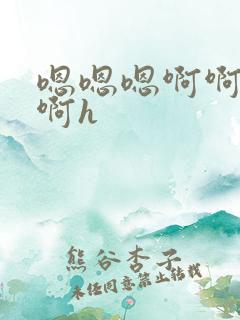 嗯嗯嗯啊啊
啊h
熊谷杏子
未经同意禁止转载